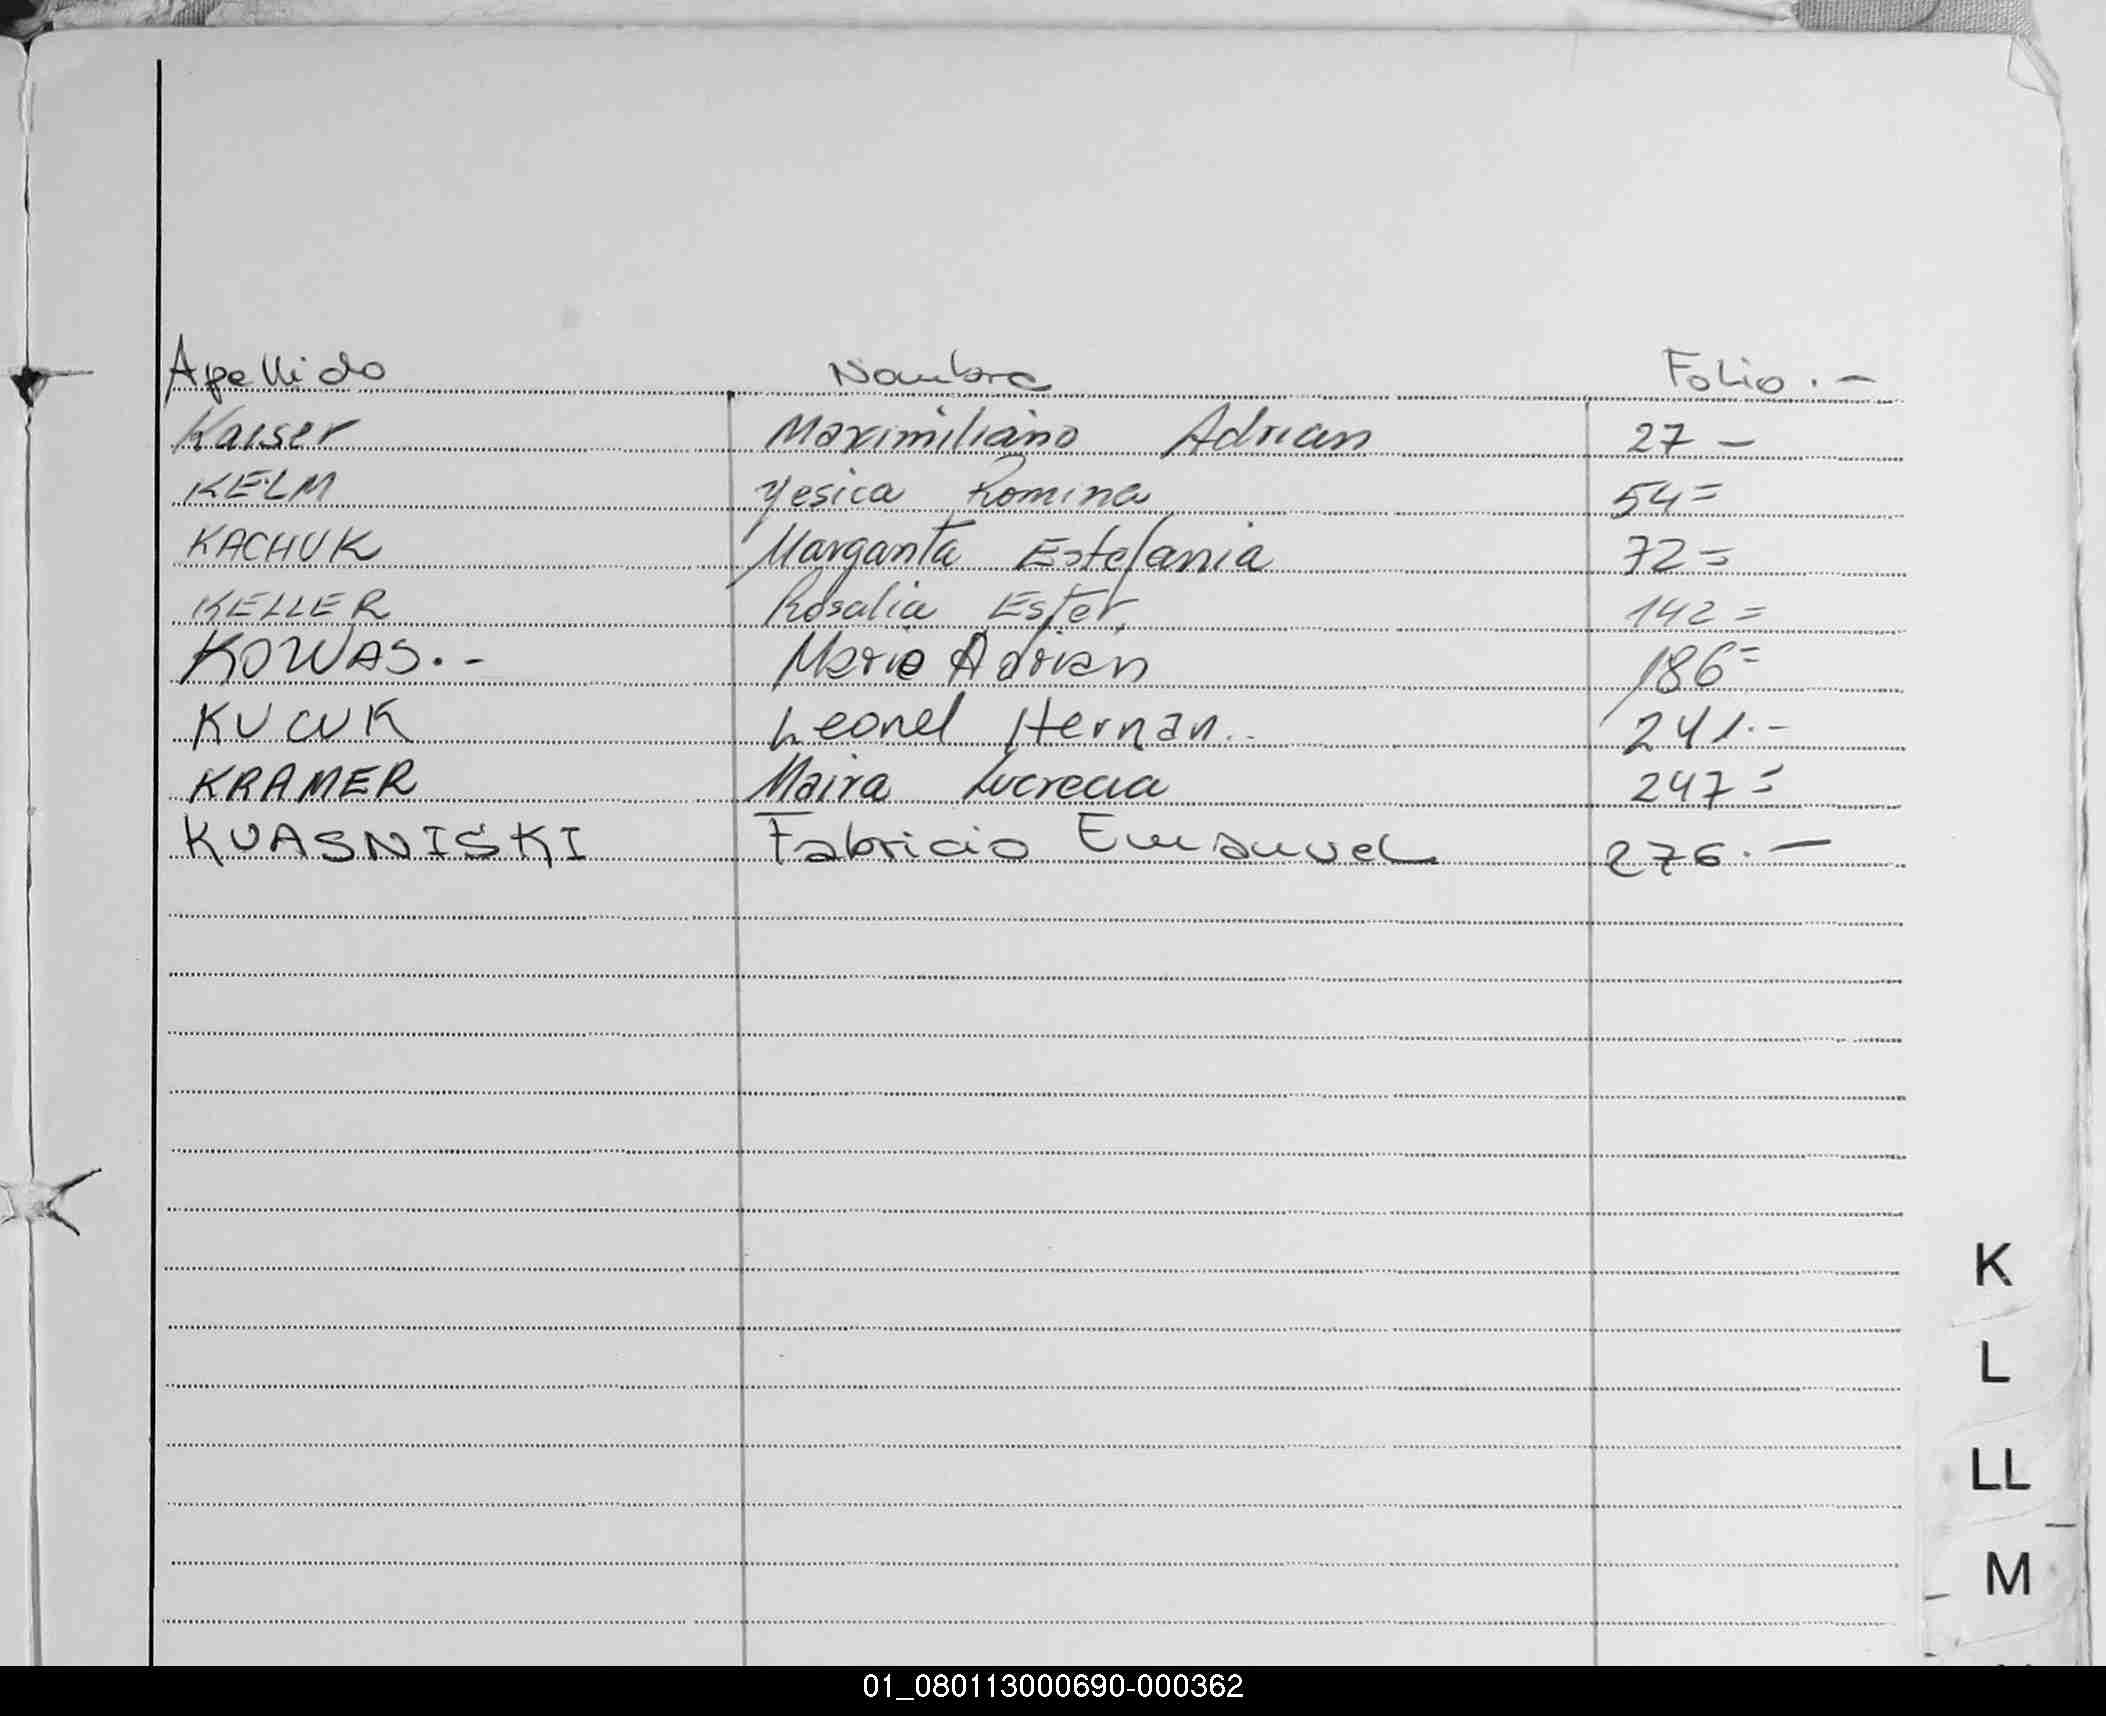 Apellido Nombre Folio.-
Kaiser Maximiliano Adrian 27-
KELM Yesica Romina 54=
KACHUK Margarita Estefania 72=
KELLER Rosalia Ester, 142=
KOWAS.- Mario Adrian 186=
KUCUK Leonel Hernan.. 241.-
KRAMER Maira Lucrecia 247=
KUASNISKI Fabricio Emanuel 276.-
K
L
LL
M
01_080113000690-000362